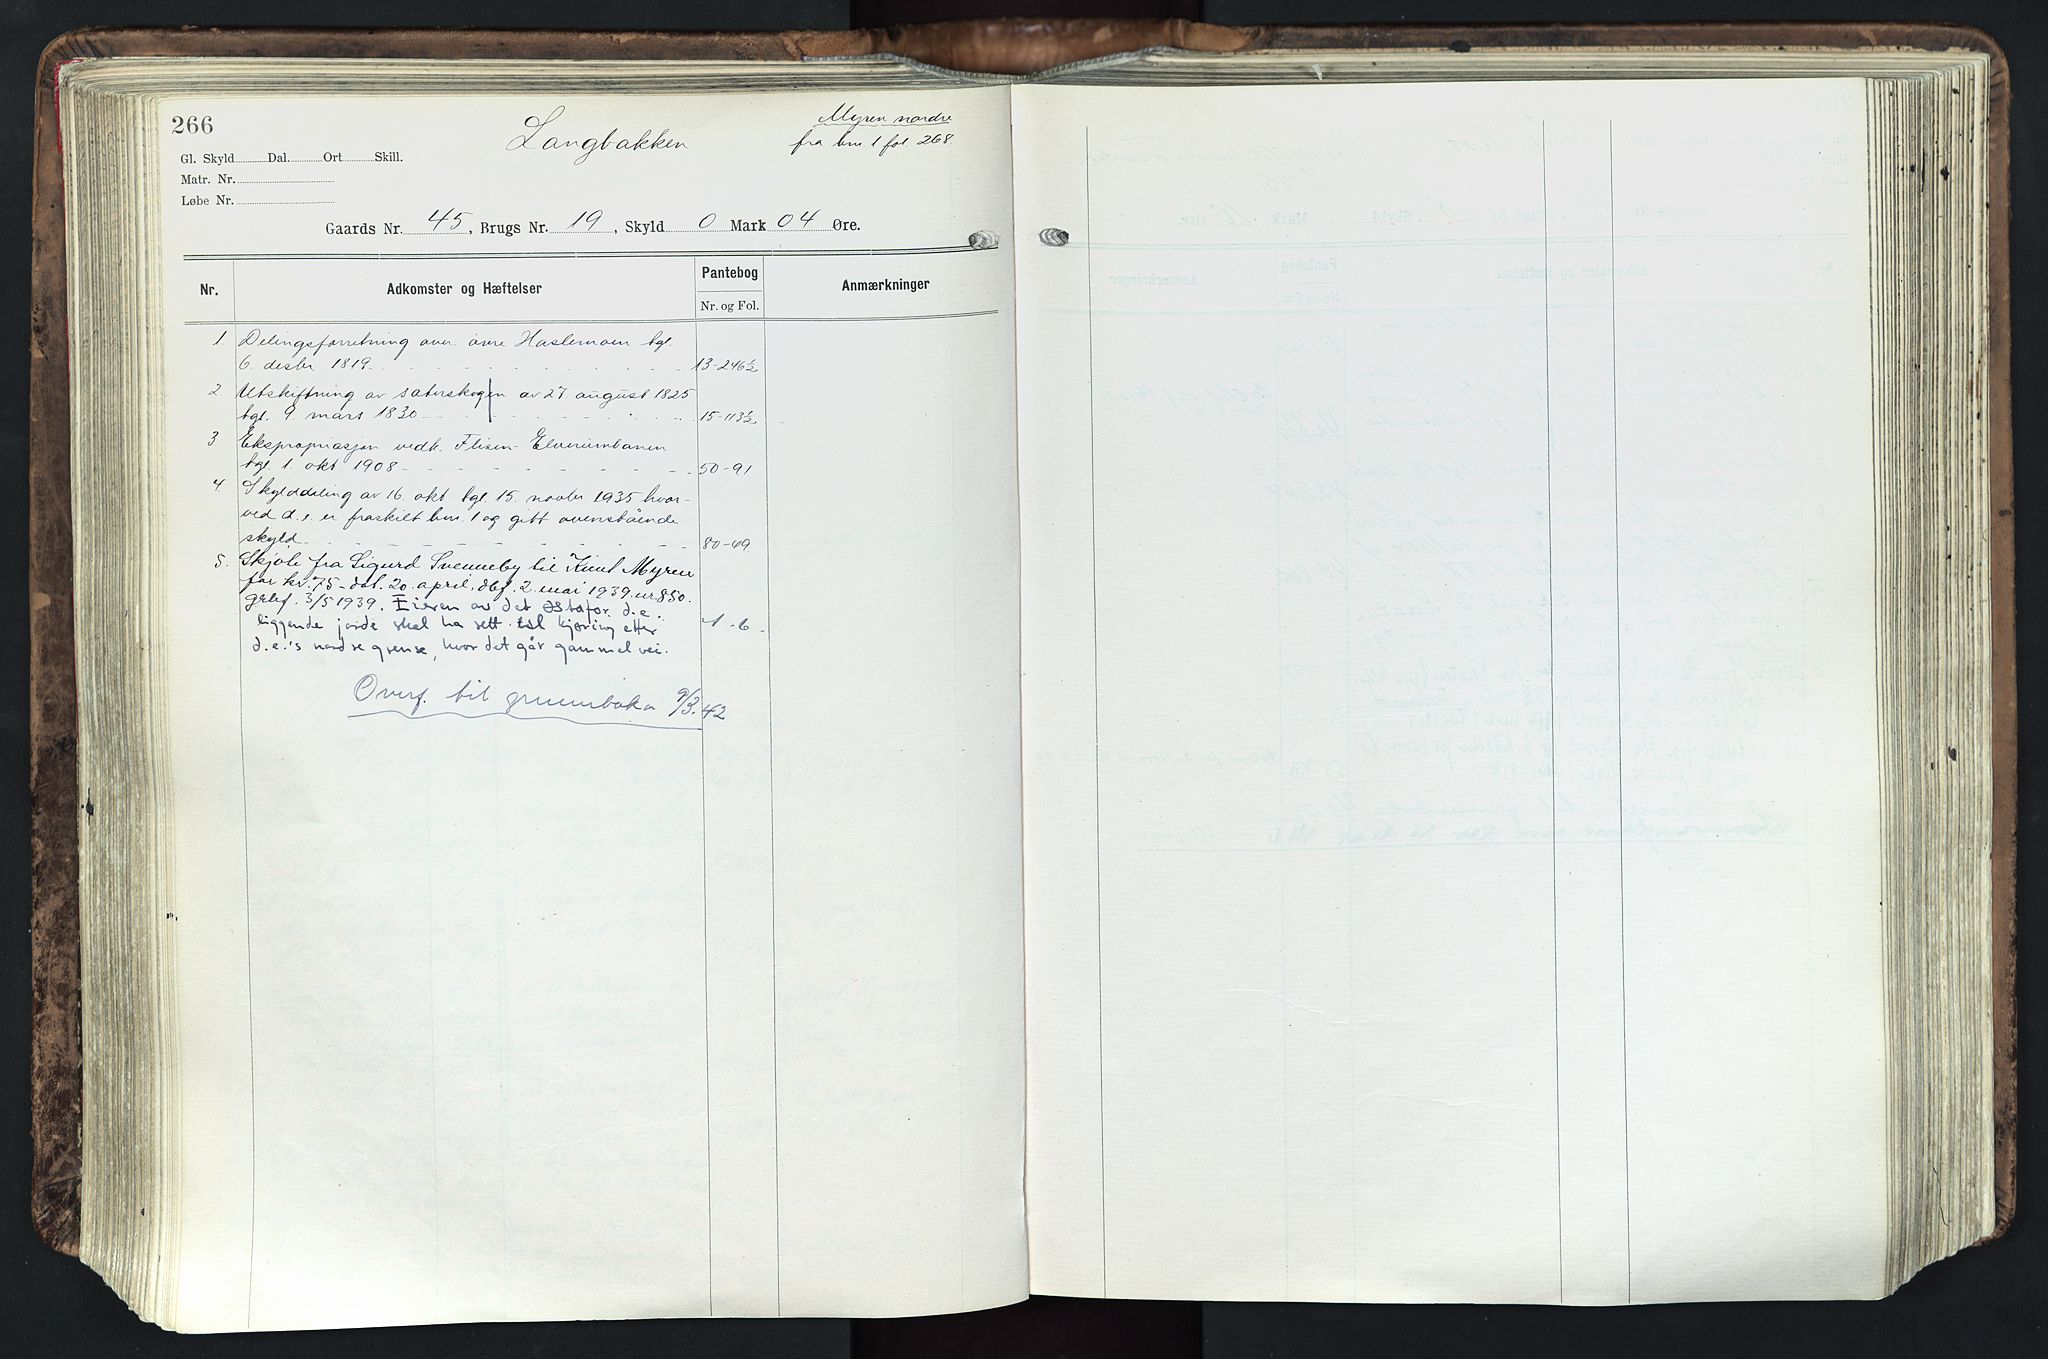 266
Langbakken
Myren nordre
fra bnr 1 fol. 268
Gl. Skyld Dal. Ort Skill.
Matr. Nr.
Løbe Nr.
Gaards Nr. 45, Brugs Nr. 19, Skyld 0 Mark 04 Øre.
Nr. Adkomster og Hæftelser Pantebog Anmærkninger
Nr. og Fol.
1 Delingsforretning over øvre Haslemoen tgl.
6. desbr 1819. 13-246½
2 Utskiftning av sæterskogen av 27 august 1825
tgl. 9 mars 1830 15-113½
3 Ekspropriasjon vedk. Flisen-Elverumbanen
tgl. 1. okt. 1908 50-91
4 Skylddeling av 16. okt tgl. 15. novbr. 1935 hvor-
ved d.e. er fraskilt bnr. 1 og gitt ovenstående
skyld. 80-49
5. Skjøte fra Sigurd Svenneby til Knut Myren
for kr. 75 - dat. 20. april, dbf. 2. mai 1939. nr. 850.
grbf. 3/5 1939. Eieren av det østafor d.e.
liggende jorde skal ha rett til kjøring etter 1-6
d.e.'s nordre grense, hvor det går gammel vei.
Overf. til grunnboka 9/3.42